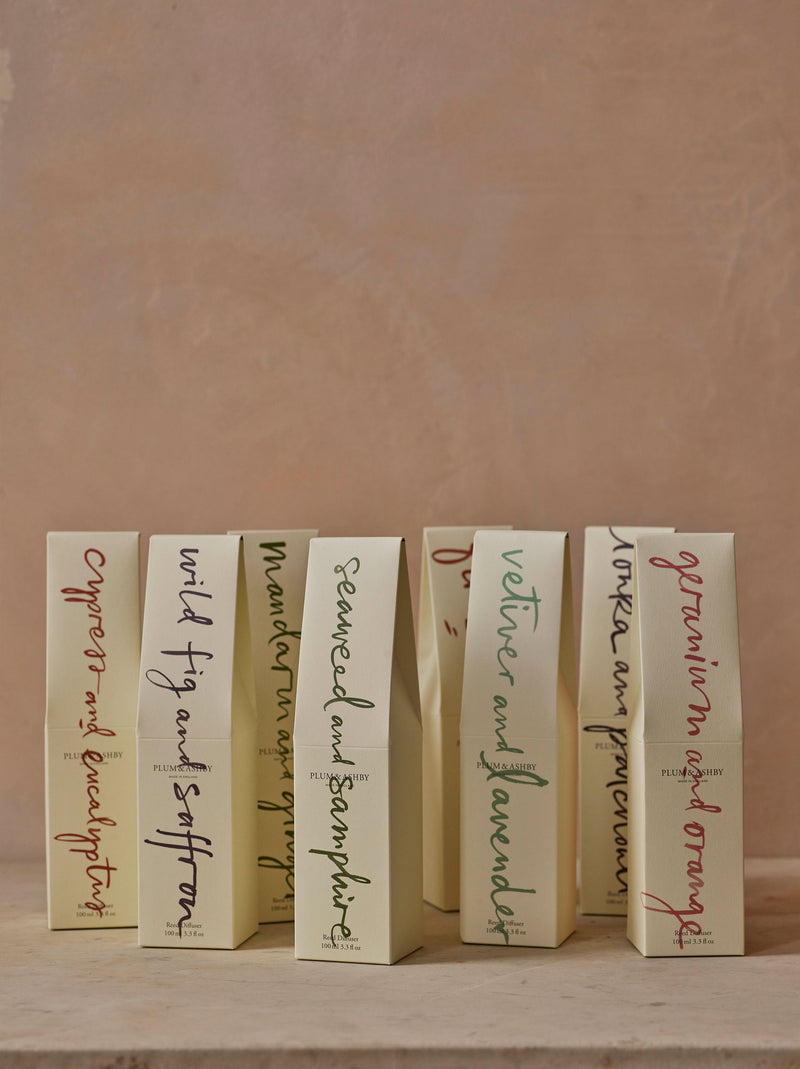 cypress and eucalyptus
PLUM & ASHBY
Reed Diffuser
100 ml 3.3 fl oz
wild fig and saffron
PLUM & ASHBY
MADE IN ENGLAND
Reed Diffuser
100 ml 3.3 fl oz
mandarin and ginger
PLUM
Reed
100 ml
seaweed and samphire
PLUM & ASHBY
MADE IN ENGLAND
Reed Diffuser
100 ml 3.3 fl oz
vetiver and lavender
PLUM & ASHBY
Reed Diffuser
100 ml 3.3 fl oz
tonka and patchouli
PLUM
geranium and orange
PLUM & ASHBY
MADE IN ENGLAND
Reed Diffuser
100 ml 3.3 fl oz